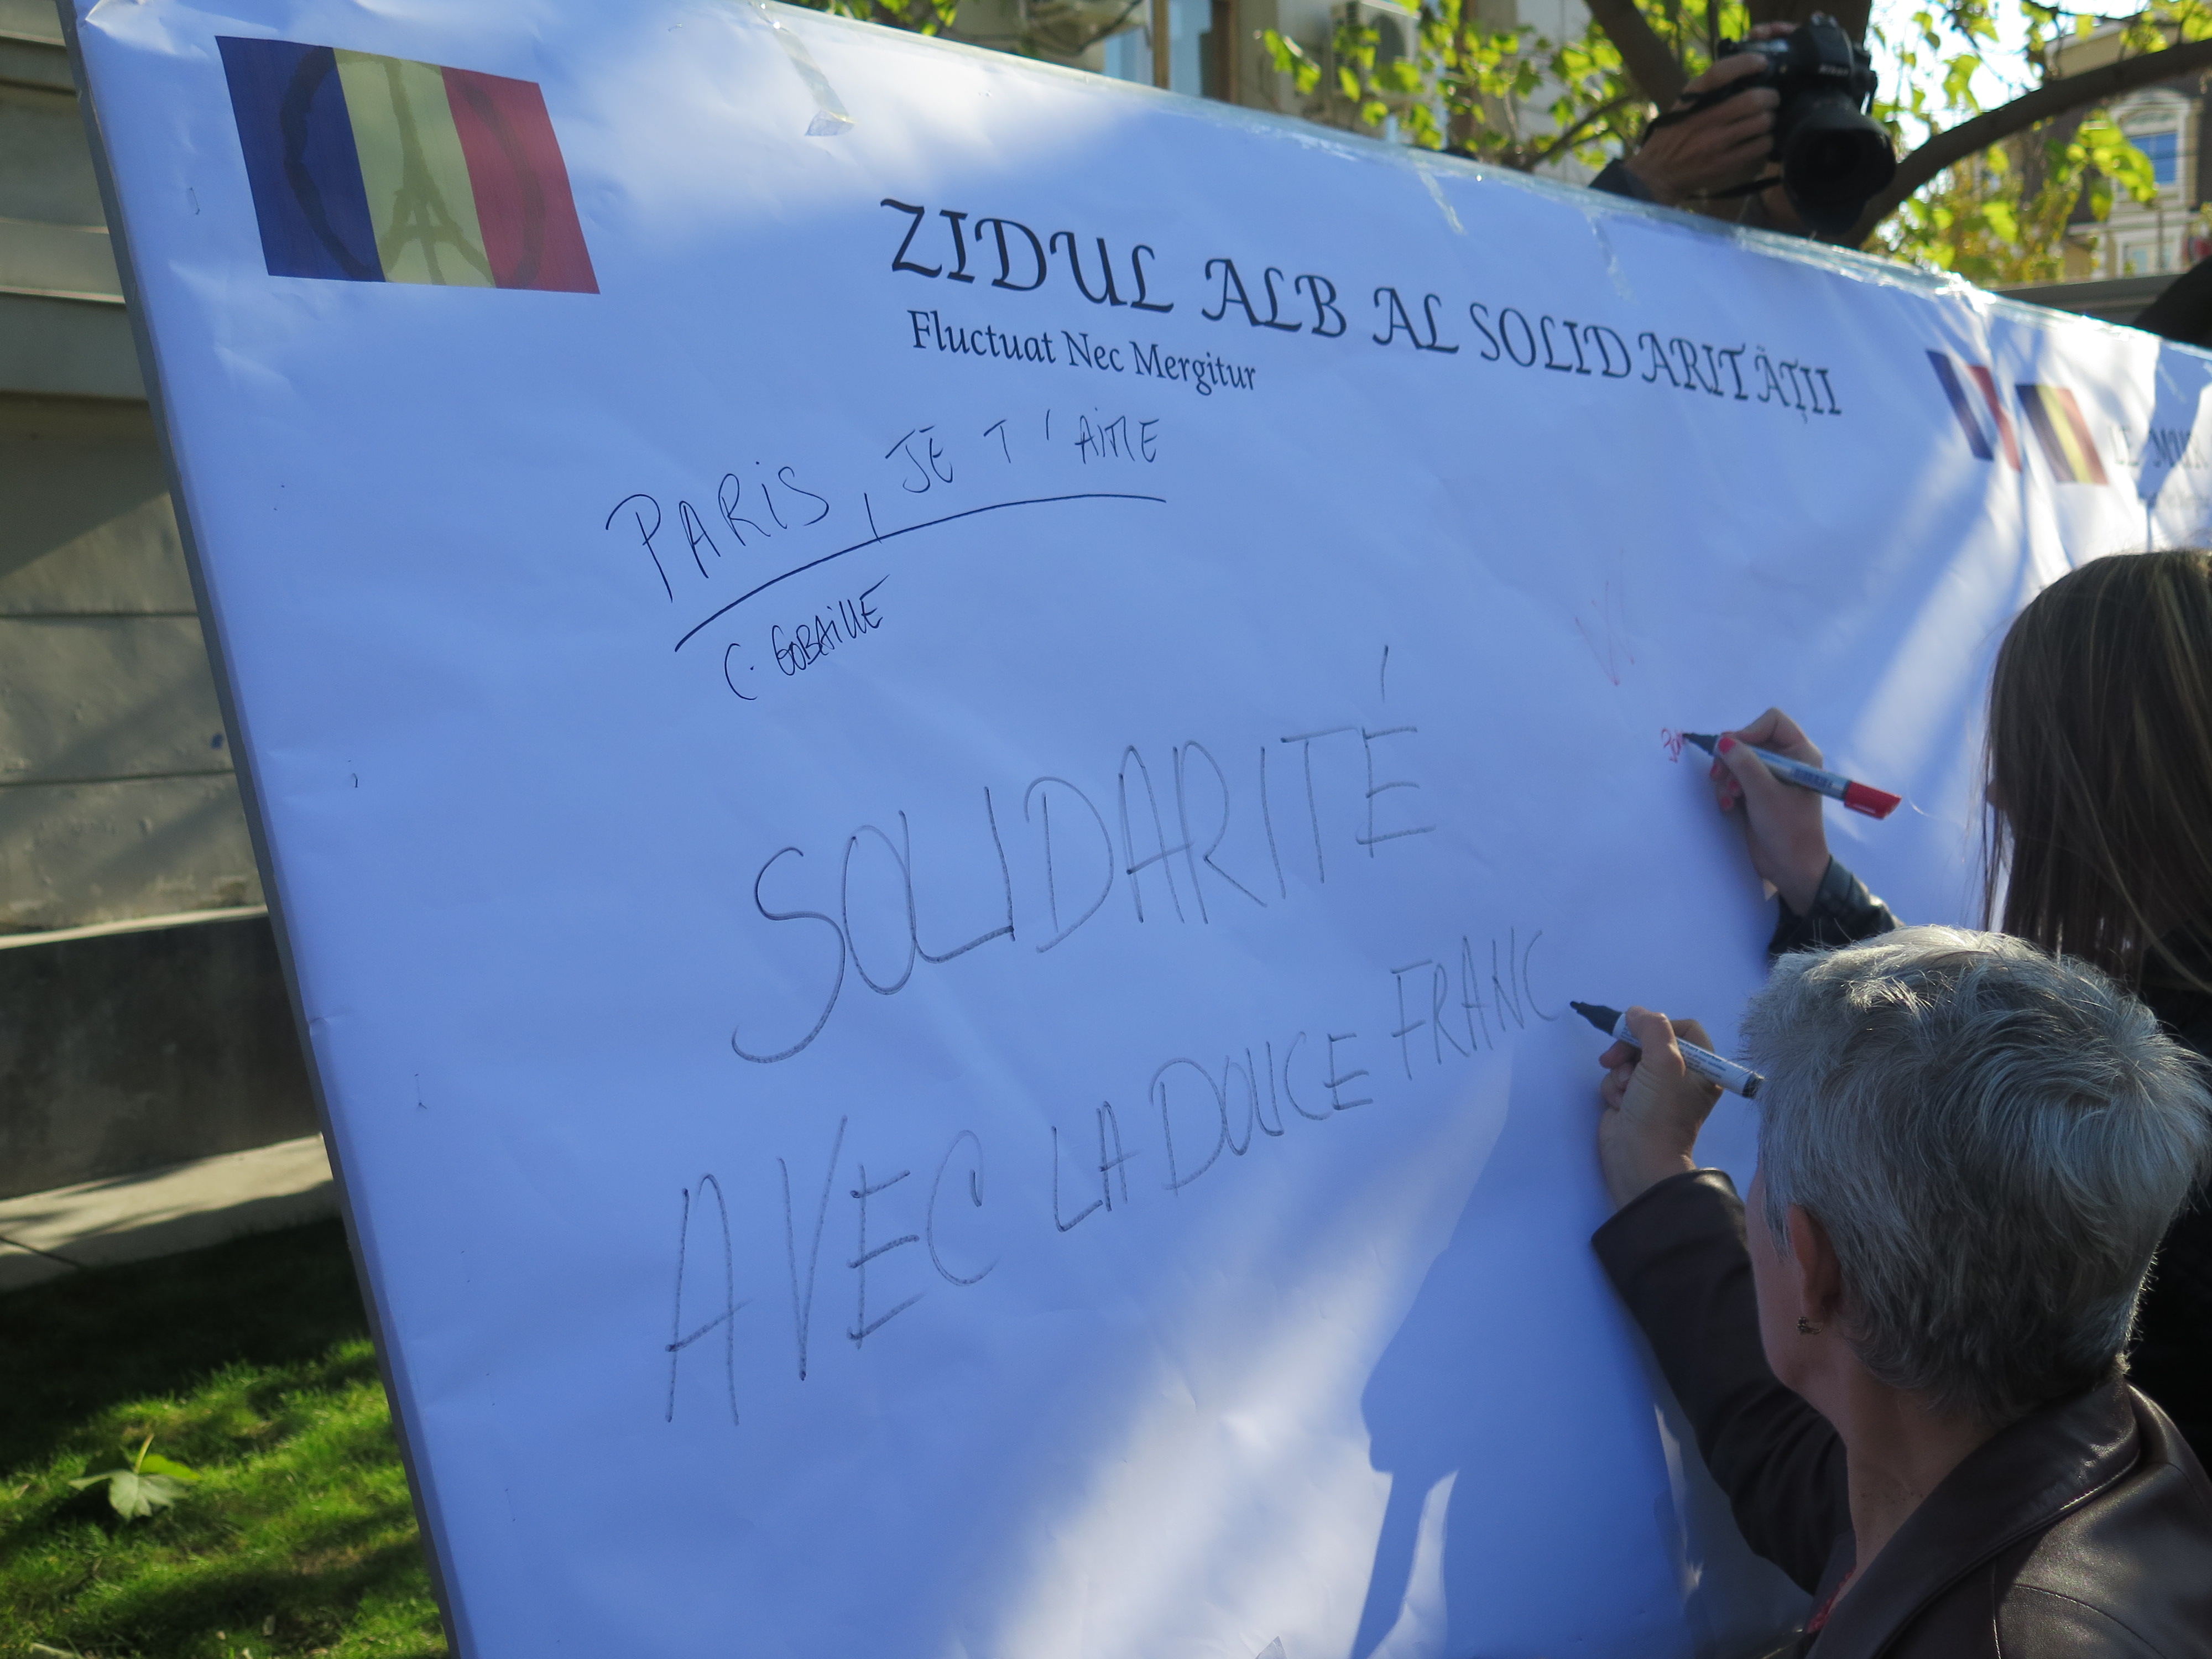 ZIDUL ALB AL SOLIDARITĂȚII
Fluctuat Nec Mergitur
PARIS, JE T'AIME
C. GOBAILLE
SOLIDARITÉ
AVEC LA DOUCE FRANC
LE MUR